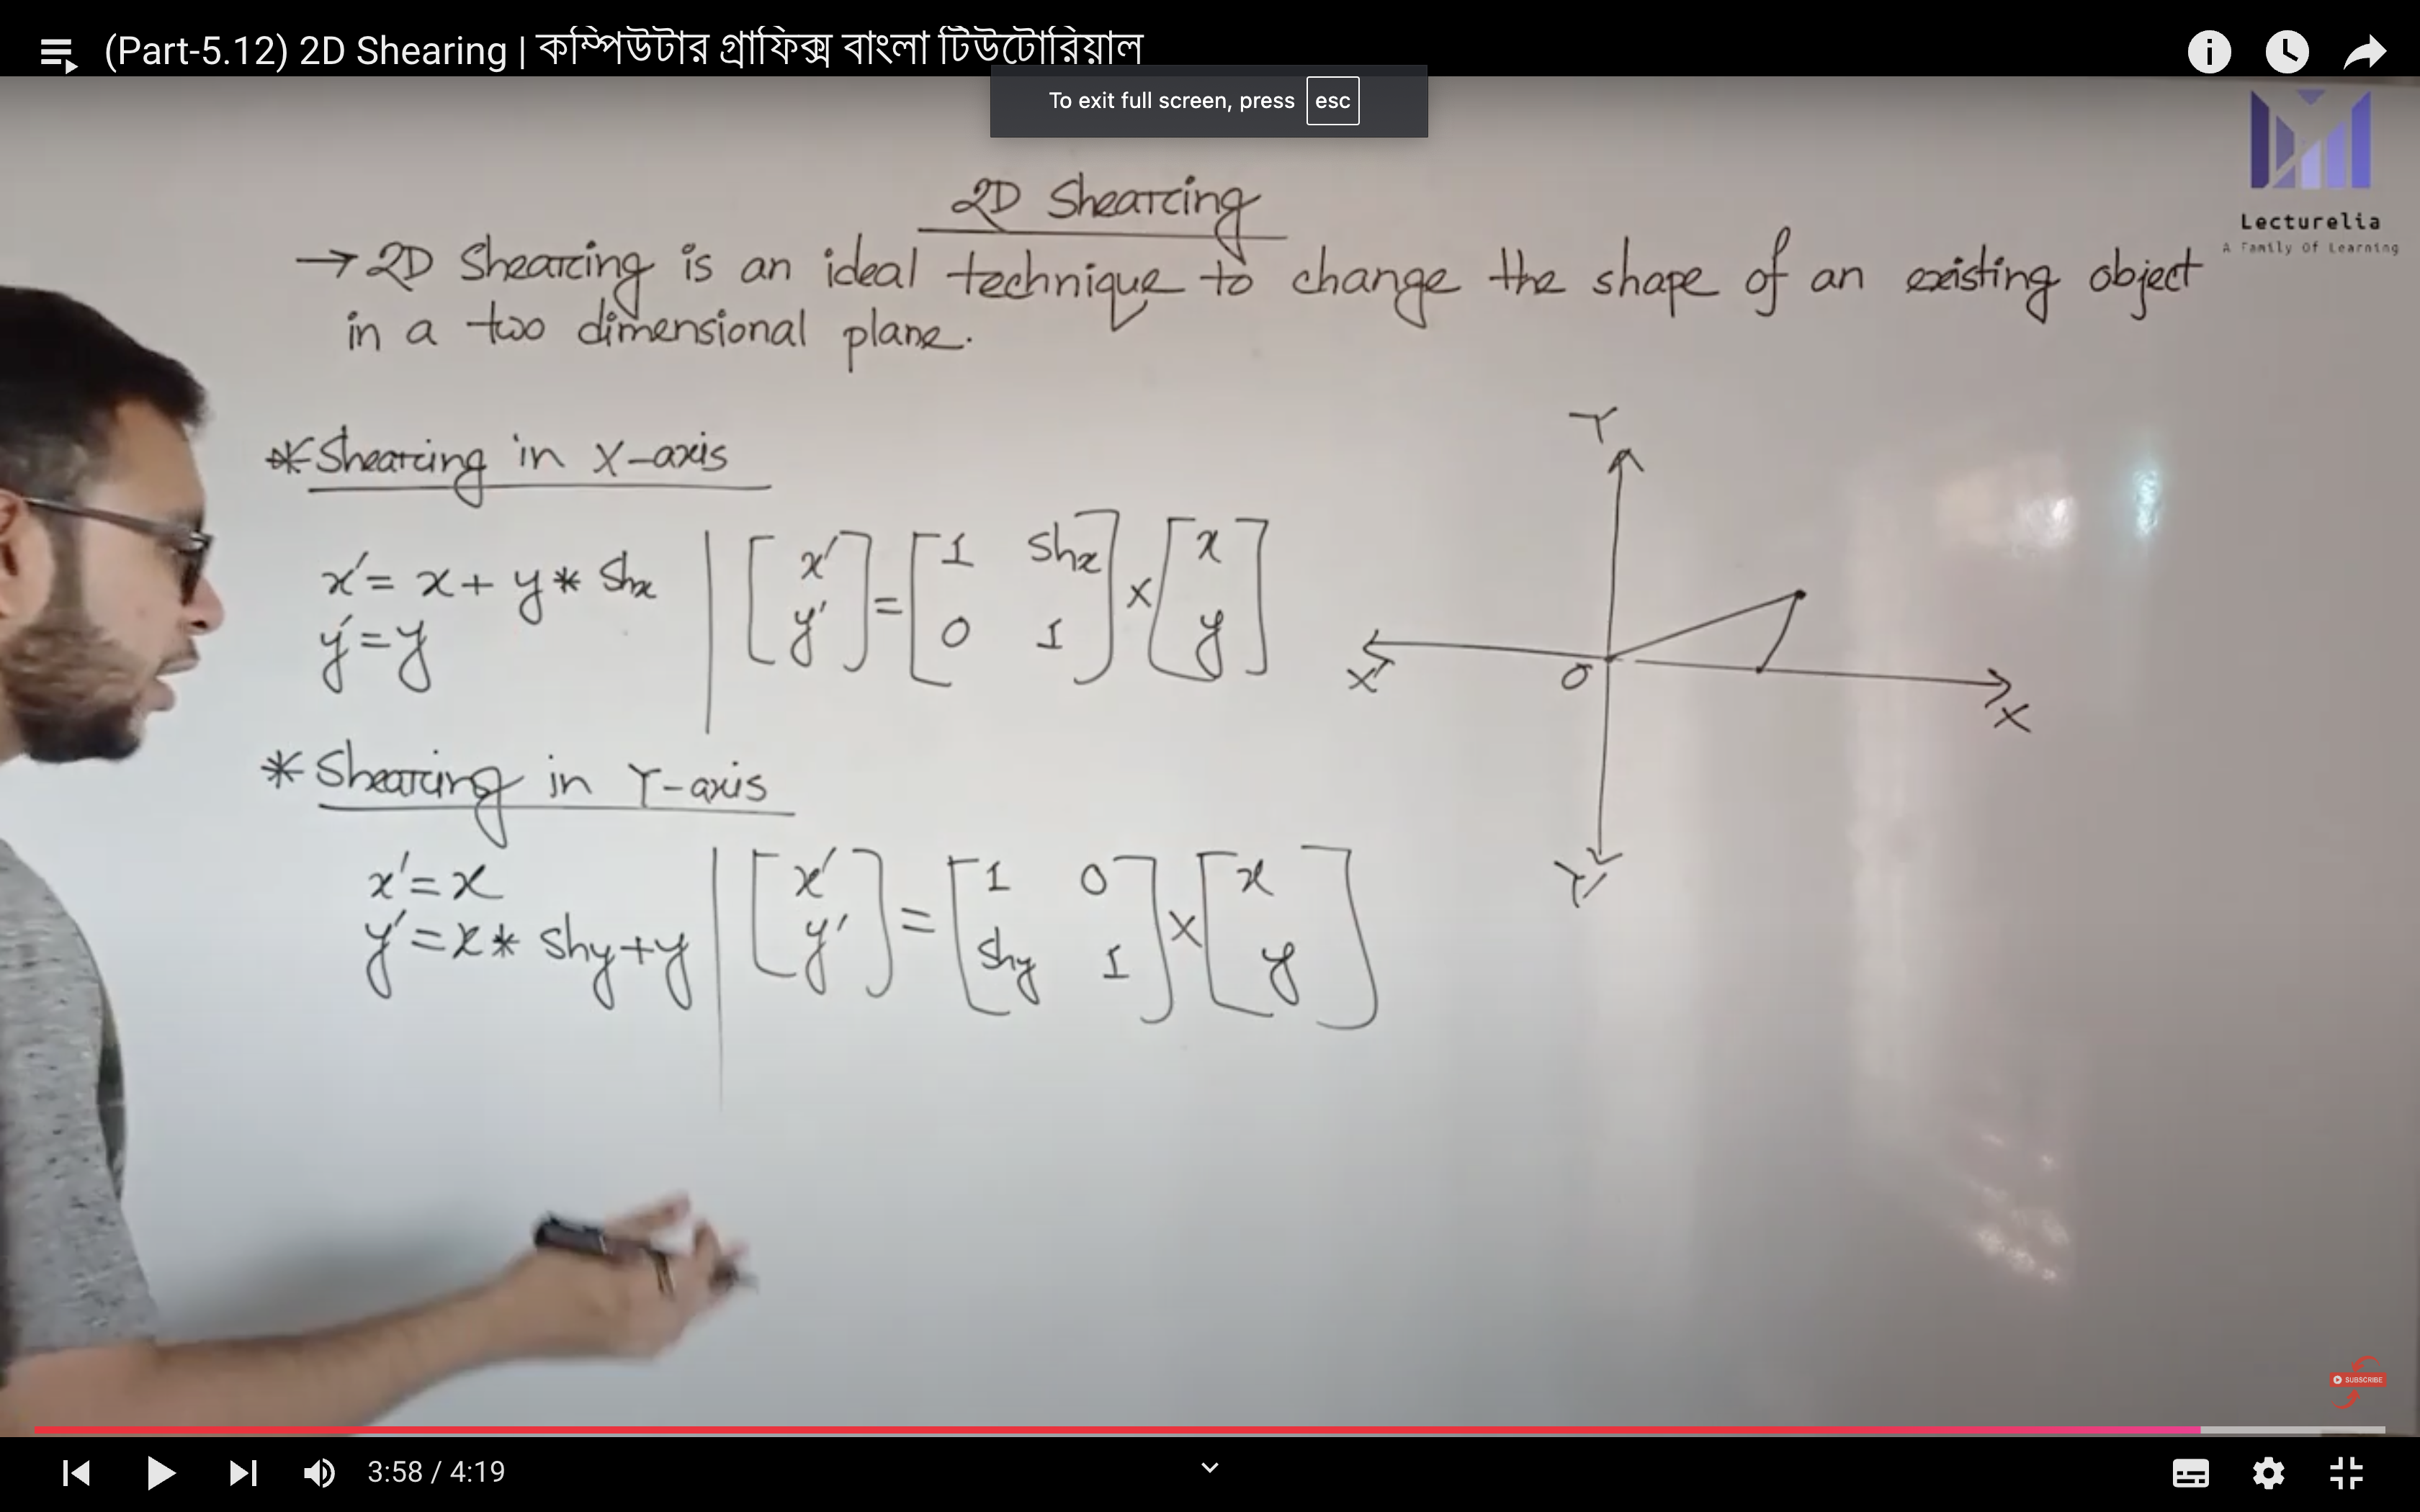 (Part-5.12) 2D Shearing | কম্পিউটার গ্রাফিক্স বাংলা টিউটোরিয়াল
To exit full screen, press esc
Lecturelia
A Family Of Learning
2D Shearing
→ 2D Shearing is an ideal technique to change the shape of an existing object
in a two dimensional plane.
* Shearing in X-axis
x' = x + y * Shx
y' = y
[x' y'] = [1 Shx 0 1] × [x y]
* Shearing in Y-axis
x' = x
y' = x * Shy + y
[x' y'] = [1 0 Shy 1] × [x y]
Y
X'
O
X
Y'
SUBSCRIBE
3:58 / 4:19